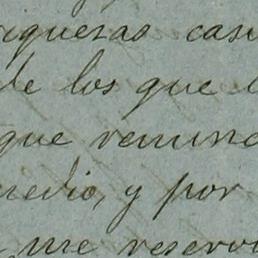 riquezas casi
de los que
que renunc
medio, y por
me reserv